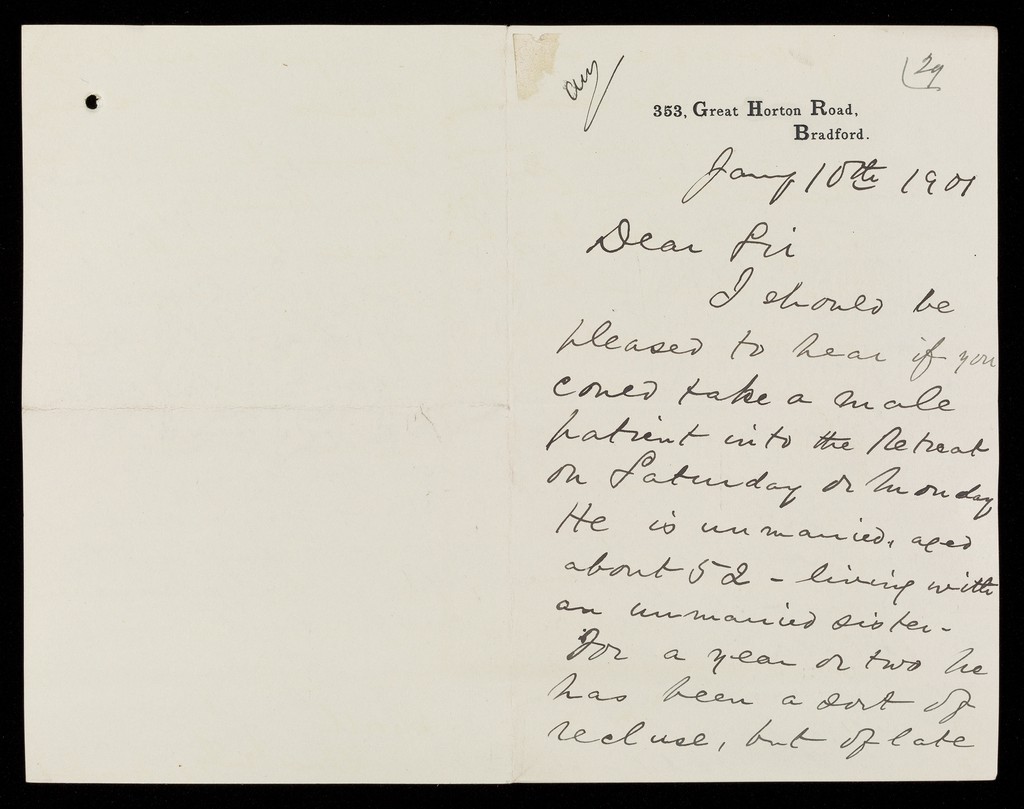 29
353, Great Horton Road,
Bradford.
Jany 10th 1901
Dear Sir
I should be
pleased to hear if you
could take a male
patient into the Retreat
on Saturday or Monday
He is unmarried, aged
about 52 - living with
an unmarried sister.
For a year or two he
has been a sort of
recluse, but of late